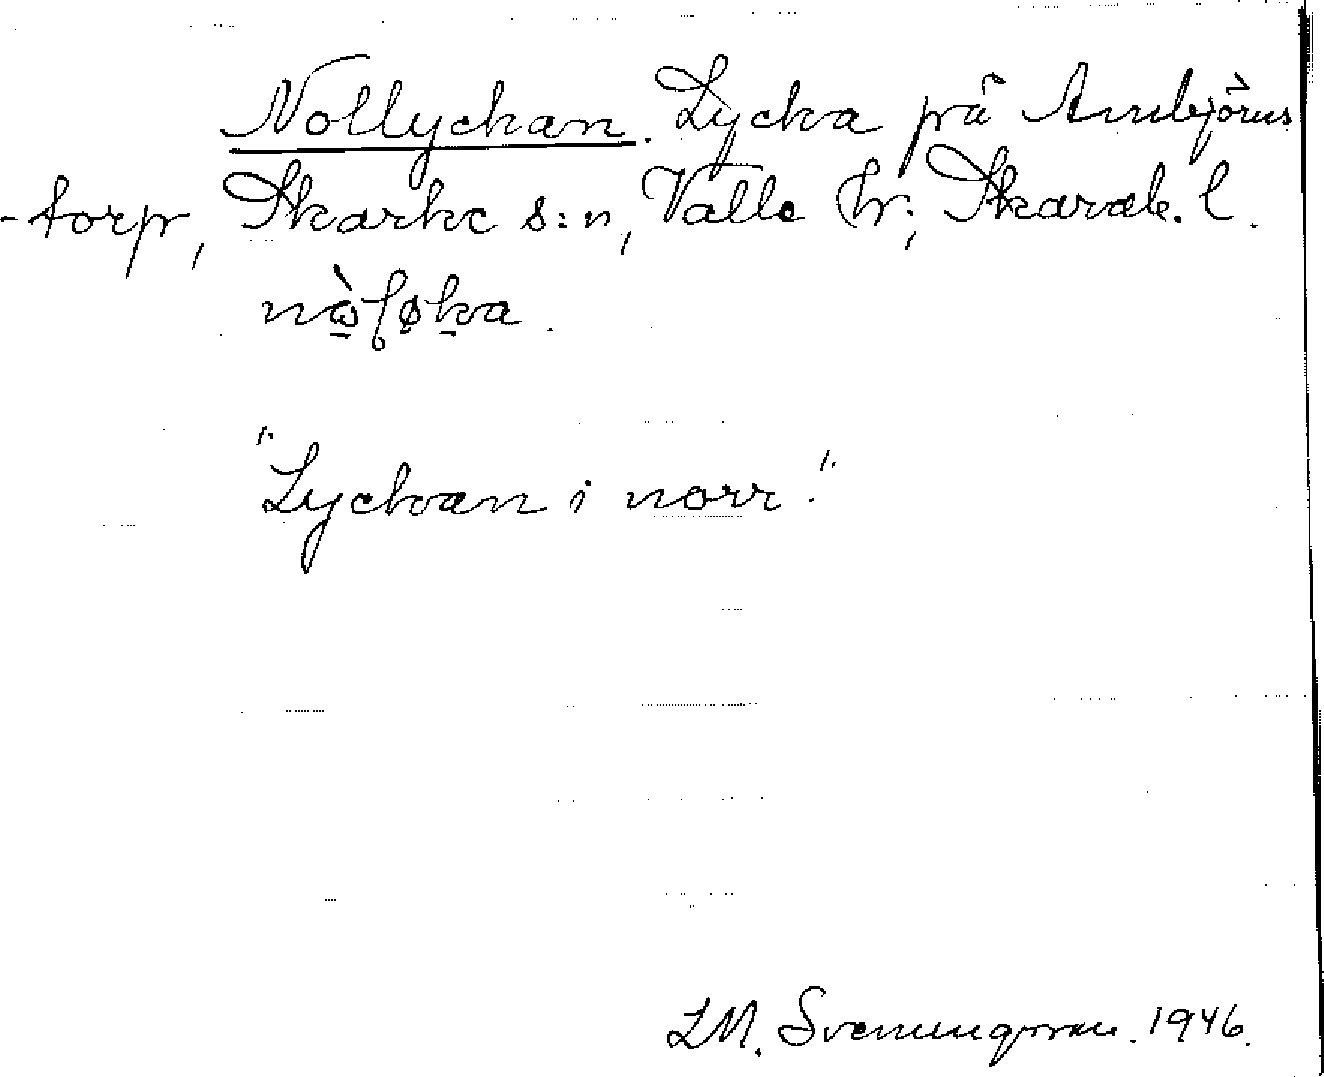 Nollyckan. Lycka på Ambjörns
-torp, Skarke s:n, Valle hr; Skarab. l.
nɷ̀lø̱ka.
"Lyckan i norr."
LM. Svenungsson. 1946.